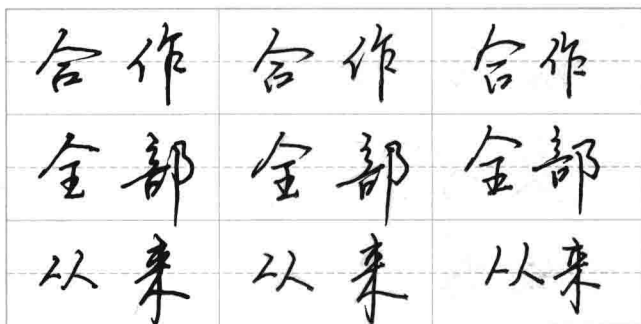 合作 合作 合作
全部 全部 全部
从来 从来 从来